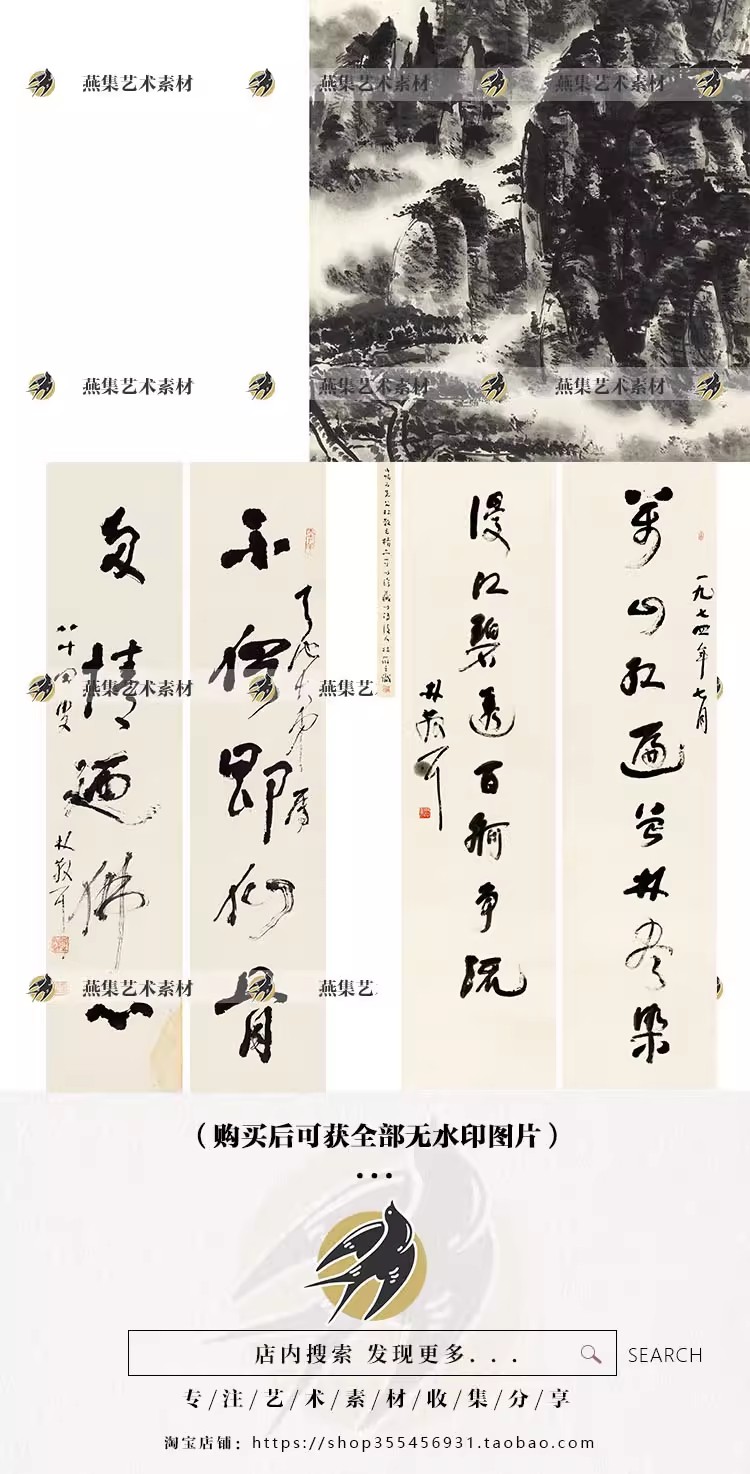 燕集艺术素材 燕集艺术素材 燕集艺术素材
燕集艺术素材 燕集艺术素材 燕集艺术素材
一九七四年七月
萬山红遍层林尽染
漫江碧透百舸争流
林散耳
不俗即仙骨
多情乃佛心
八十四叟
林散耳
燕集艺术素材 燕集艺
燕集艺术素材 燕集艺
（购买后可获全部无水印图片）
...
店内搜索 发现更多...
SEARCH
专注/艺术/素材收集分享
淘宝店铺：https://shop355456931.taobao.com